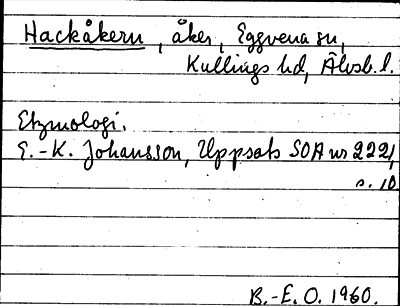 Hackåkern, åker, Eggvena sn,
Kullings hd, Älvsb. l.
Etymologi.
E.-K. Johansson, Uppsats SOA nr 222,
s. 10
B.-E. O. 1960.